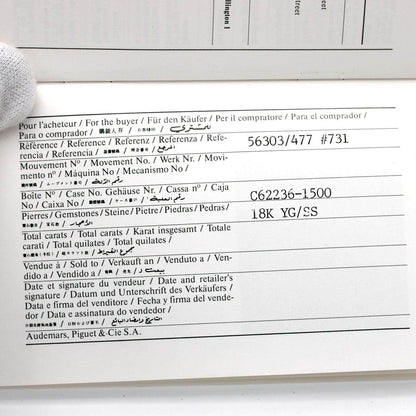 llington 1
treet
street
Pour l'acheteur / For the buyer / Für den Käufer / Per il compratore / Para el comprador /
Para o comprador / 購級人存 / お客様用 / للمشتري /
Référence / Reference / Referenz / Referenza / Refe-
rencia / Referencia / المرجع /
56303/477 #731
Mouvement Nº / Movement No. / Werk Nr. / Movi-
mento nº / Máquina No / Mecanismo No /
ムーブメント番号 / رقم الآلة /
Boîte Nº / Case No. Gehäuse Nr. / Cassa nº / Caja
No / Caixa No / ケース番号 / رقم العلبة /
C62236-1500
Pierres / Gemstones / Steine / Pietre / Piedras / Pedras /
宝石類 / الأحجار /
18K YG/SS
Total carats / Total carats / Karat insgesamt / Totale
carati / Total quilates / Total quilates /
総カラット数 / مجموع القيراط /
Vendue à / Sold to / Verkauft an / Venduto a / Ven-
dido a / Vendido a /
Date et signature du vendeur / Date and retailer's
signature / Datum und Unterschrift des Verkäufers /
Data e firma del venditore / Fecha y firma del vende-
dor / Data e assinatura do vendedor /
التاريخ وإمضاء البائع /
Audemars, Piguet & Cie S.A.